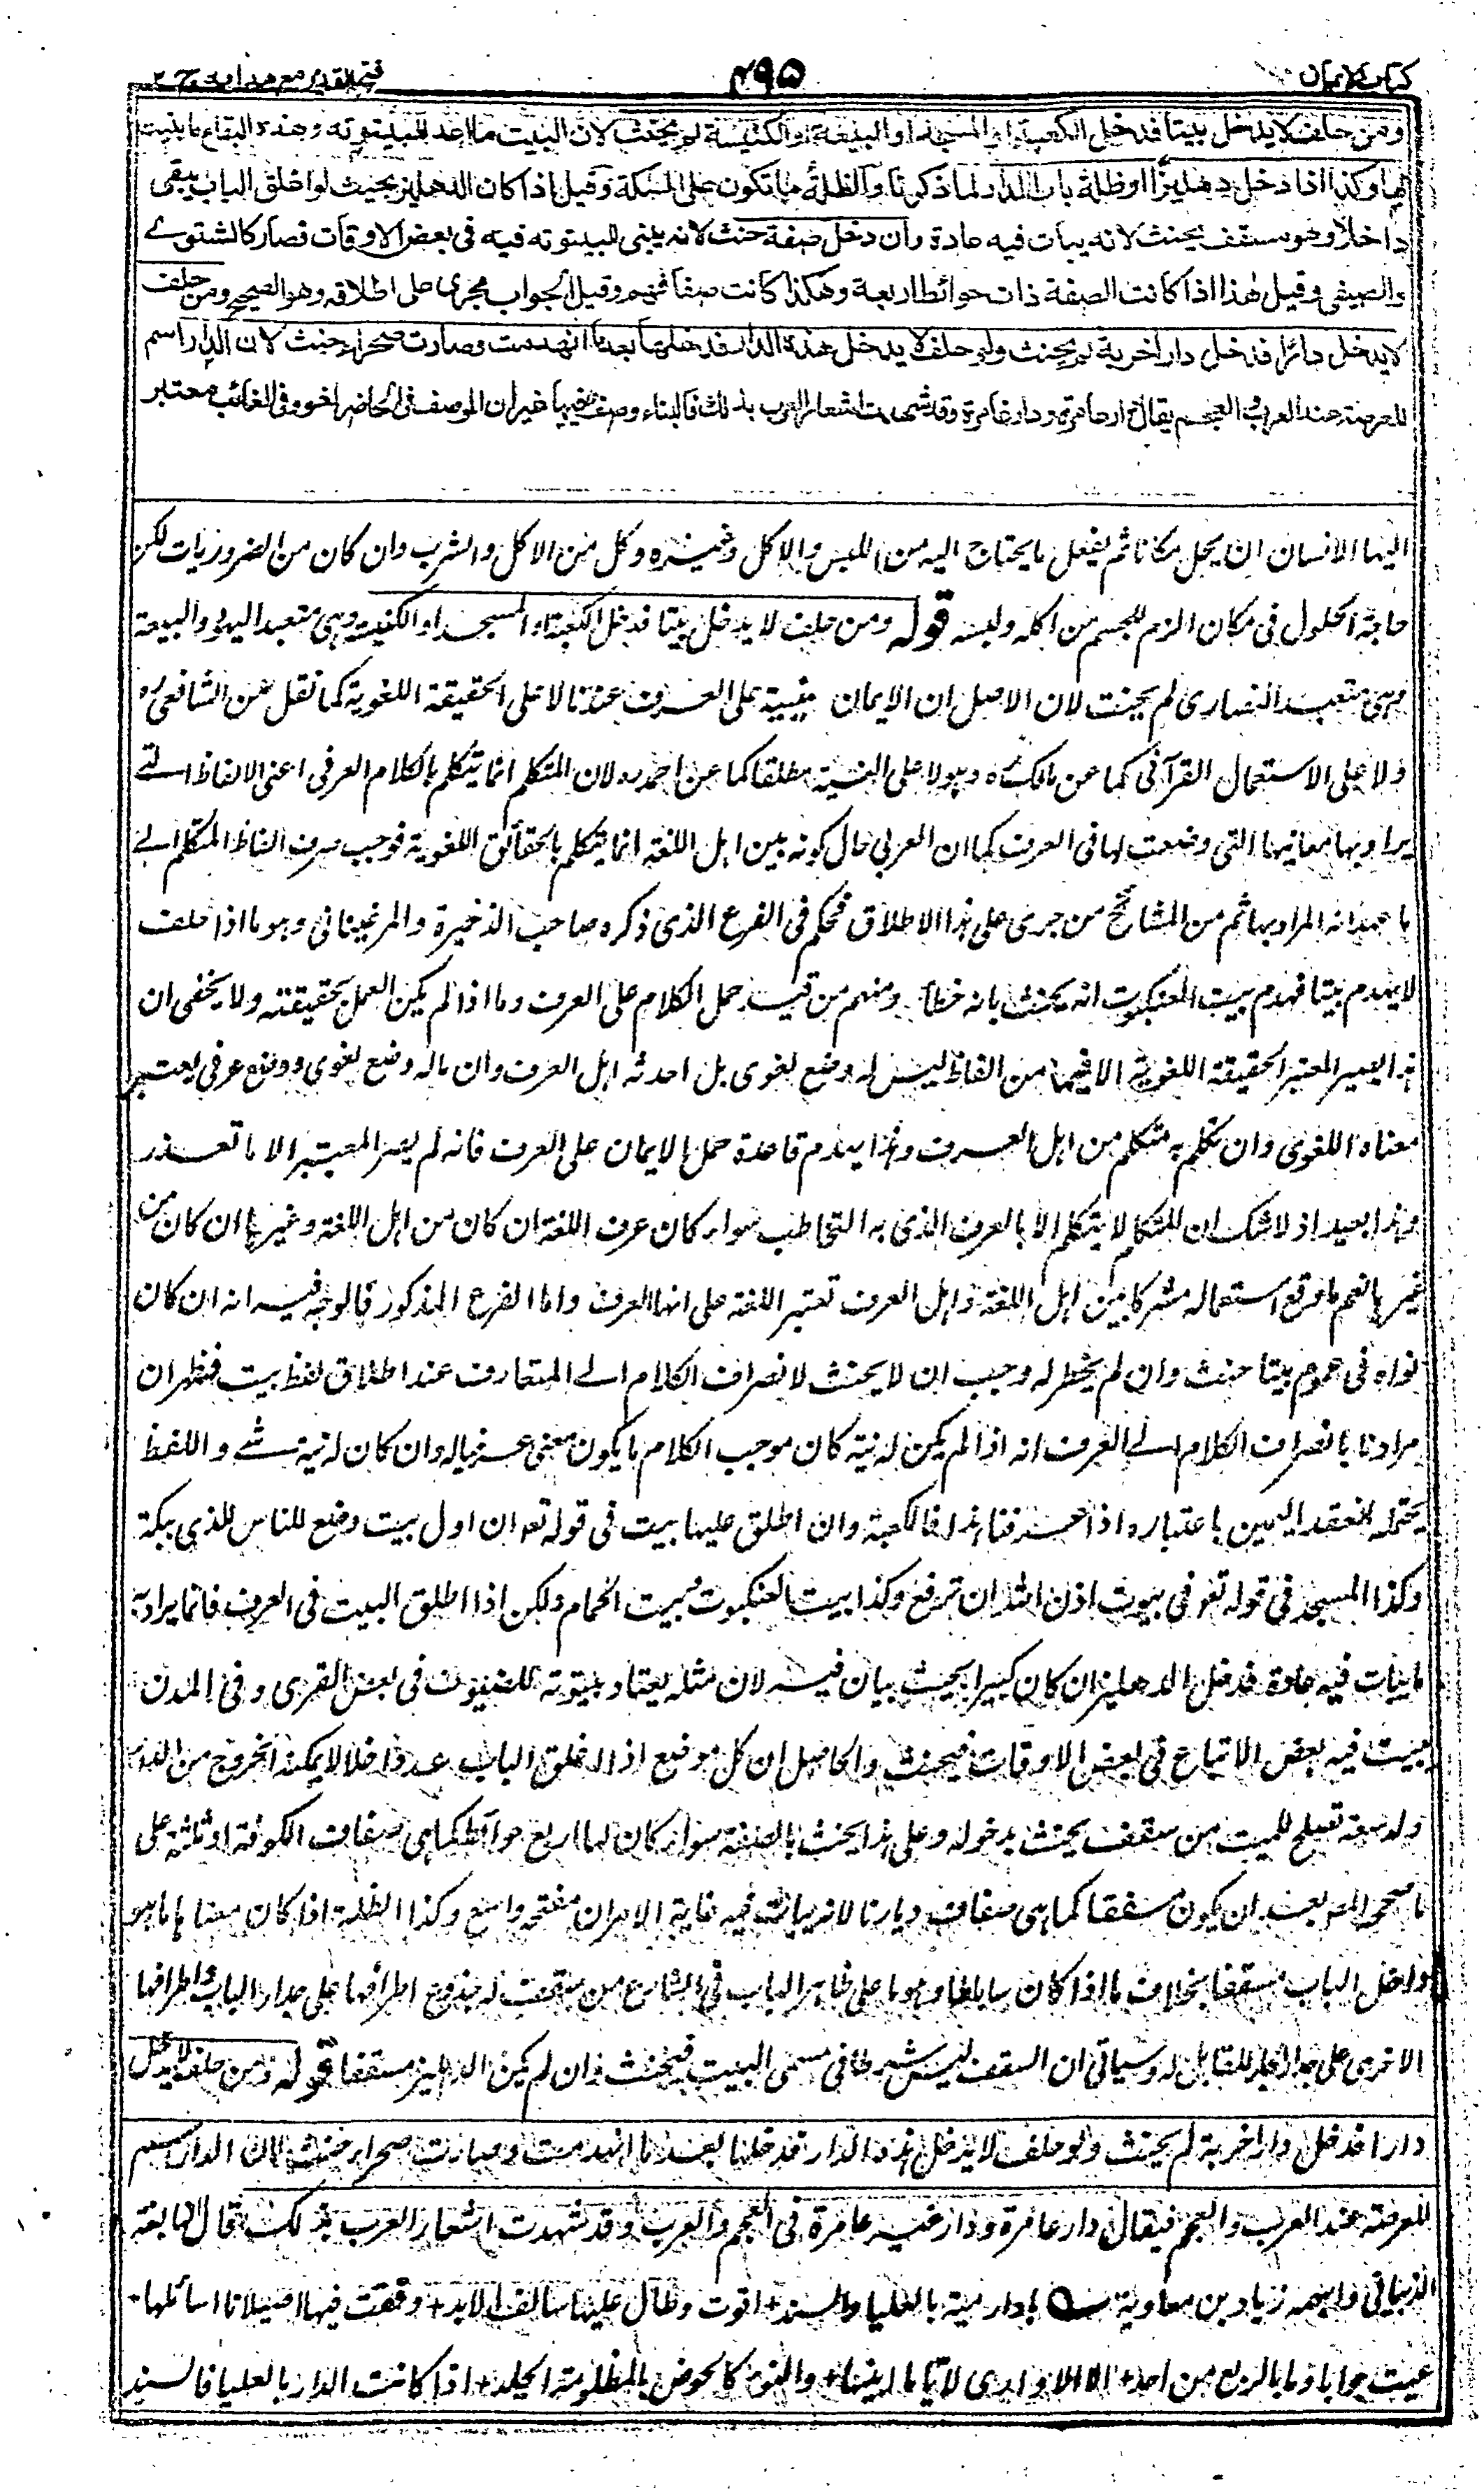 كتاب الايمان
٤٩٥
فتح القدير مع هدايه ج ٢
ومن حلف لا يدخل بيتا فدخل الكعبة او المسجد او البيعة او الكنيسة لم يحنث لان البيت ما اعد للبيتوتة وهذه البقاع ما بنيت
لها وكذا اذا دخل دهليزا او ظلة باب الدار لما ذكرنا والظلة ما تكون على السكة وقيل اذا كان الدهليز بحيث لو اغلق الباب يبقى
داخلا وهو مسقف يحنث لانه يبات فيه عادة وان دخل صفة حنث لانه يبنى للبيتوتة فيه في بعض الاوقات فصار كالشتوي
والصيفي وقيل هذا اذا كانت الصفة ذات حوائط اربعة وهكذا كانت صفافهم وقيل الجواب مجرى على اطلاقه وهو الصحيح ومن حلف
لا يدخل دارا فدخل دارا خربة لم يحنث ولو حلف لا يدخل هذه الدار فدخلها بعد ما انهدمت وصارت صحراء حنث لان الدار اسم
للعرصة عند العرب والعجم يقال دار عامرة ودار غامرة وقد شهدت اشعار العرب بذلك فالبناء وصف فيها غير ان الوصف في الحاضر لغو وفي الغائب معتبر
اليها الانسان ان يحل مكانا ثم يفعل ما يحتاج اليه من اللبس والاكل وغيره وكل من الاكل والشرب وان كان من الضروريات لكن
حاجة الحلول في مكان الزم للجسم من اكله ولبسه قوله ومن حلف لا يدخل بيتا فدخل الكعبة او المسجد او الكنيسة وهي متعبد اليهود والبيعة
وهي متعبد النصارى لم يحنث لان الاصل ان الايمان مبنية على العرف عندنا لا على الحقيقة اللغوية كما نقل عن الشافعي ره
ولا على الاستعمال القرآني كما عن مالك ره ولا على النية مطلقا كما عن احمد ره لان المتكلم انما يتكلم بالكلام العرفي اعني الالفاظ التي
يراد بها معانيها التي وضعت لها في العرف كما ان العربي حال كونه بين اهل اللغة انما يتكلم بالحقائق اللغوية فوجب صرف الفاظ المتكلم الى
ما عهد انه المراد بها ثم من المشائخ من جرى على هذا الاطلاق فحكم في الفرع الذي ذكره صاحب الذخيرة والمرغيناني وهو ما اذا حلف
لا يهدم بيتا فهدم بيت العنكبوت انه يحنث بانه خطأ ومنهم من قيد حمل الكلام على العرف وما اذا لم يكن العمل بحقيقته ولا يخفى ان
هذا يصير المعتبر الحقيقة اللغوية الا فيما من الفاظ ليس له وضع لغوى بل احدثه اهل العرف وان ما له وضع لغوى ووضع عرفي يعتبر
معناه اللغوى وان تكلم به متكلم من اهل العرف وهذا يهدم قاعدة حمل الايمان على العرف فانه لم يصر المعتبر الا ما تعذر
وهذا بعيد اذ لا شك ان المتكلم لا يتكلم الا بالعرف الذي به التخاطب سواء كان عرف اللغة ان كان من اهل اللغة وغيرها ان كان من
غيرها نعم ما وقع استعماله مشتركا بين اهل اللغة واهل العرف تعتبر اللغة على انها العرف واما الفرع المذكور فالوجه فيه انه ان كان
نواه في عموم بيتا حنث وان لم يخطر له وجب ان لا يحنث لانصراف الكلام الى المتعارف عند اطلاق لفظ بيت فظهر ان
مرادنا بانصراف الكلام الى العرف انه اذا لم يكن له نية كان موجب الكلام ما يكون معنى عرفيا له وان كان له نية شئ واللفظ
يحتمله انعقد اليمين باعتباره اذا عرفنا هذا فالكعبة وان اطلق عليها بيت في قوله تعه ان اول بيت وضع للناس للذي ببكة
وكذا المسجد في قوله تعه في بيوت اذن الله ان ترفع وكذا بيت العنكبوت وبيت الحمام ولكن اذا اطلق البيت في العرف فانما يراد به
ما يبات فيه عادة فدخل الدهليز ان كان كبيرا بحيث يبات فيه لان مثله يعتاد بيتوتة للضيوف في بعض القرى وفي المدن
يبيت فيه بعض الاتباع في بعض الاوقات فيحنث والحاصل ان كل موضع اذا اغلق الباب عد داخلا لا يمكنه الخروج من الدار
وله سعة تصلح للمبيت من مسقف يحنث بدخوله وعلى هذا يحنث بالصفة سواء كان لها اربع حوائط كما هي صفاف الكوفة او ثلثة على
ما صححه المص بعد ان يكون مسقفا كما هي صفاف ديارنا لانه يبات فيه غاية الامر ان مفتحه واسع وكذا الظلة اذا كان معناها ما هو
داخل الباب مسقفا بخلاف ما اذا كان ساباطا وهو ما على ظاهر الباب في الشارع من سقف له جذوع اطرافها على جدار الباب واطرافها
الاخرى على جدار الجار المقابل له وسياتي ان السقف ليس شرطا في مسمى البيت فيحنث وان لم يكن الدهليز مسقفا قوله ومن حلف لا يدخل
دارا فدخل دارا خربة لم يحنث ولو حلف لا يدخل هذه الدار فدخلها بعد ما انهدمت وصارت صحراء حنث لان الدار اسم
للعرصة عند العرب والعجم فيقال دار عامرة ودار غير عامرة في العجم والعرب وقد شهدت اشعار العرب بذلك قال النابغة
الذبياني واسمه زياد بن معاوية يا دار مية بالعلياء والسند + اقوت وطال عليها سالف الابد + وقفت فيها اصيلانا اسائلها +
عيت جوابا وما بالربع من احد + الا الاوارى لأيا ما ابينها + والنوى كالحوض بالمظلومة الجلد + اذا كانت الدار بالعليا فالسند